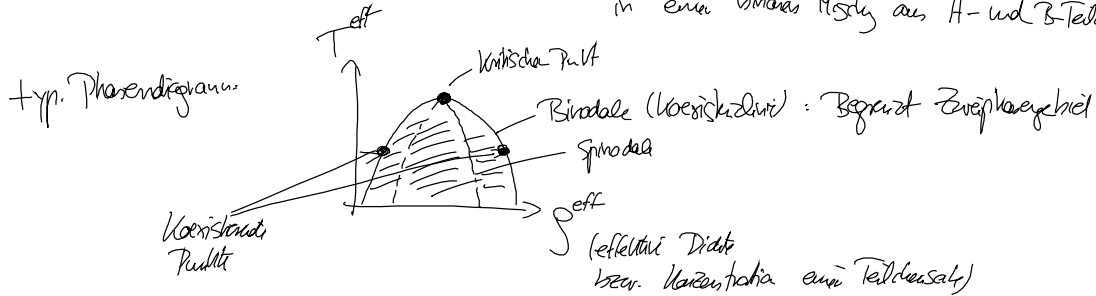 in einer binären Mischg aus A- und B-Teil
T^eff
typ. Phasendiagramm
kritischer Punkt
Binodale (Koexistenzlinie) : Begrenzt Zweiphasengebiet
Spinodale
Koexistierende
Punkte
ρ^eff
(effektive Dichte
bzw. Konzentration einer Teilchensorte)